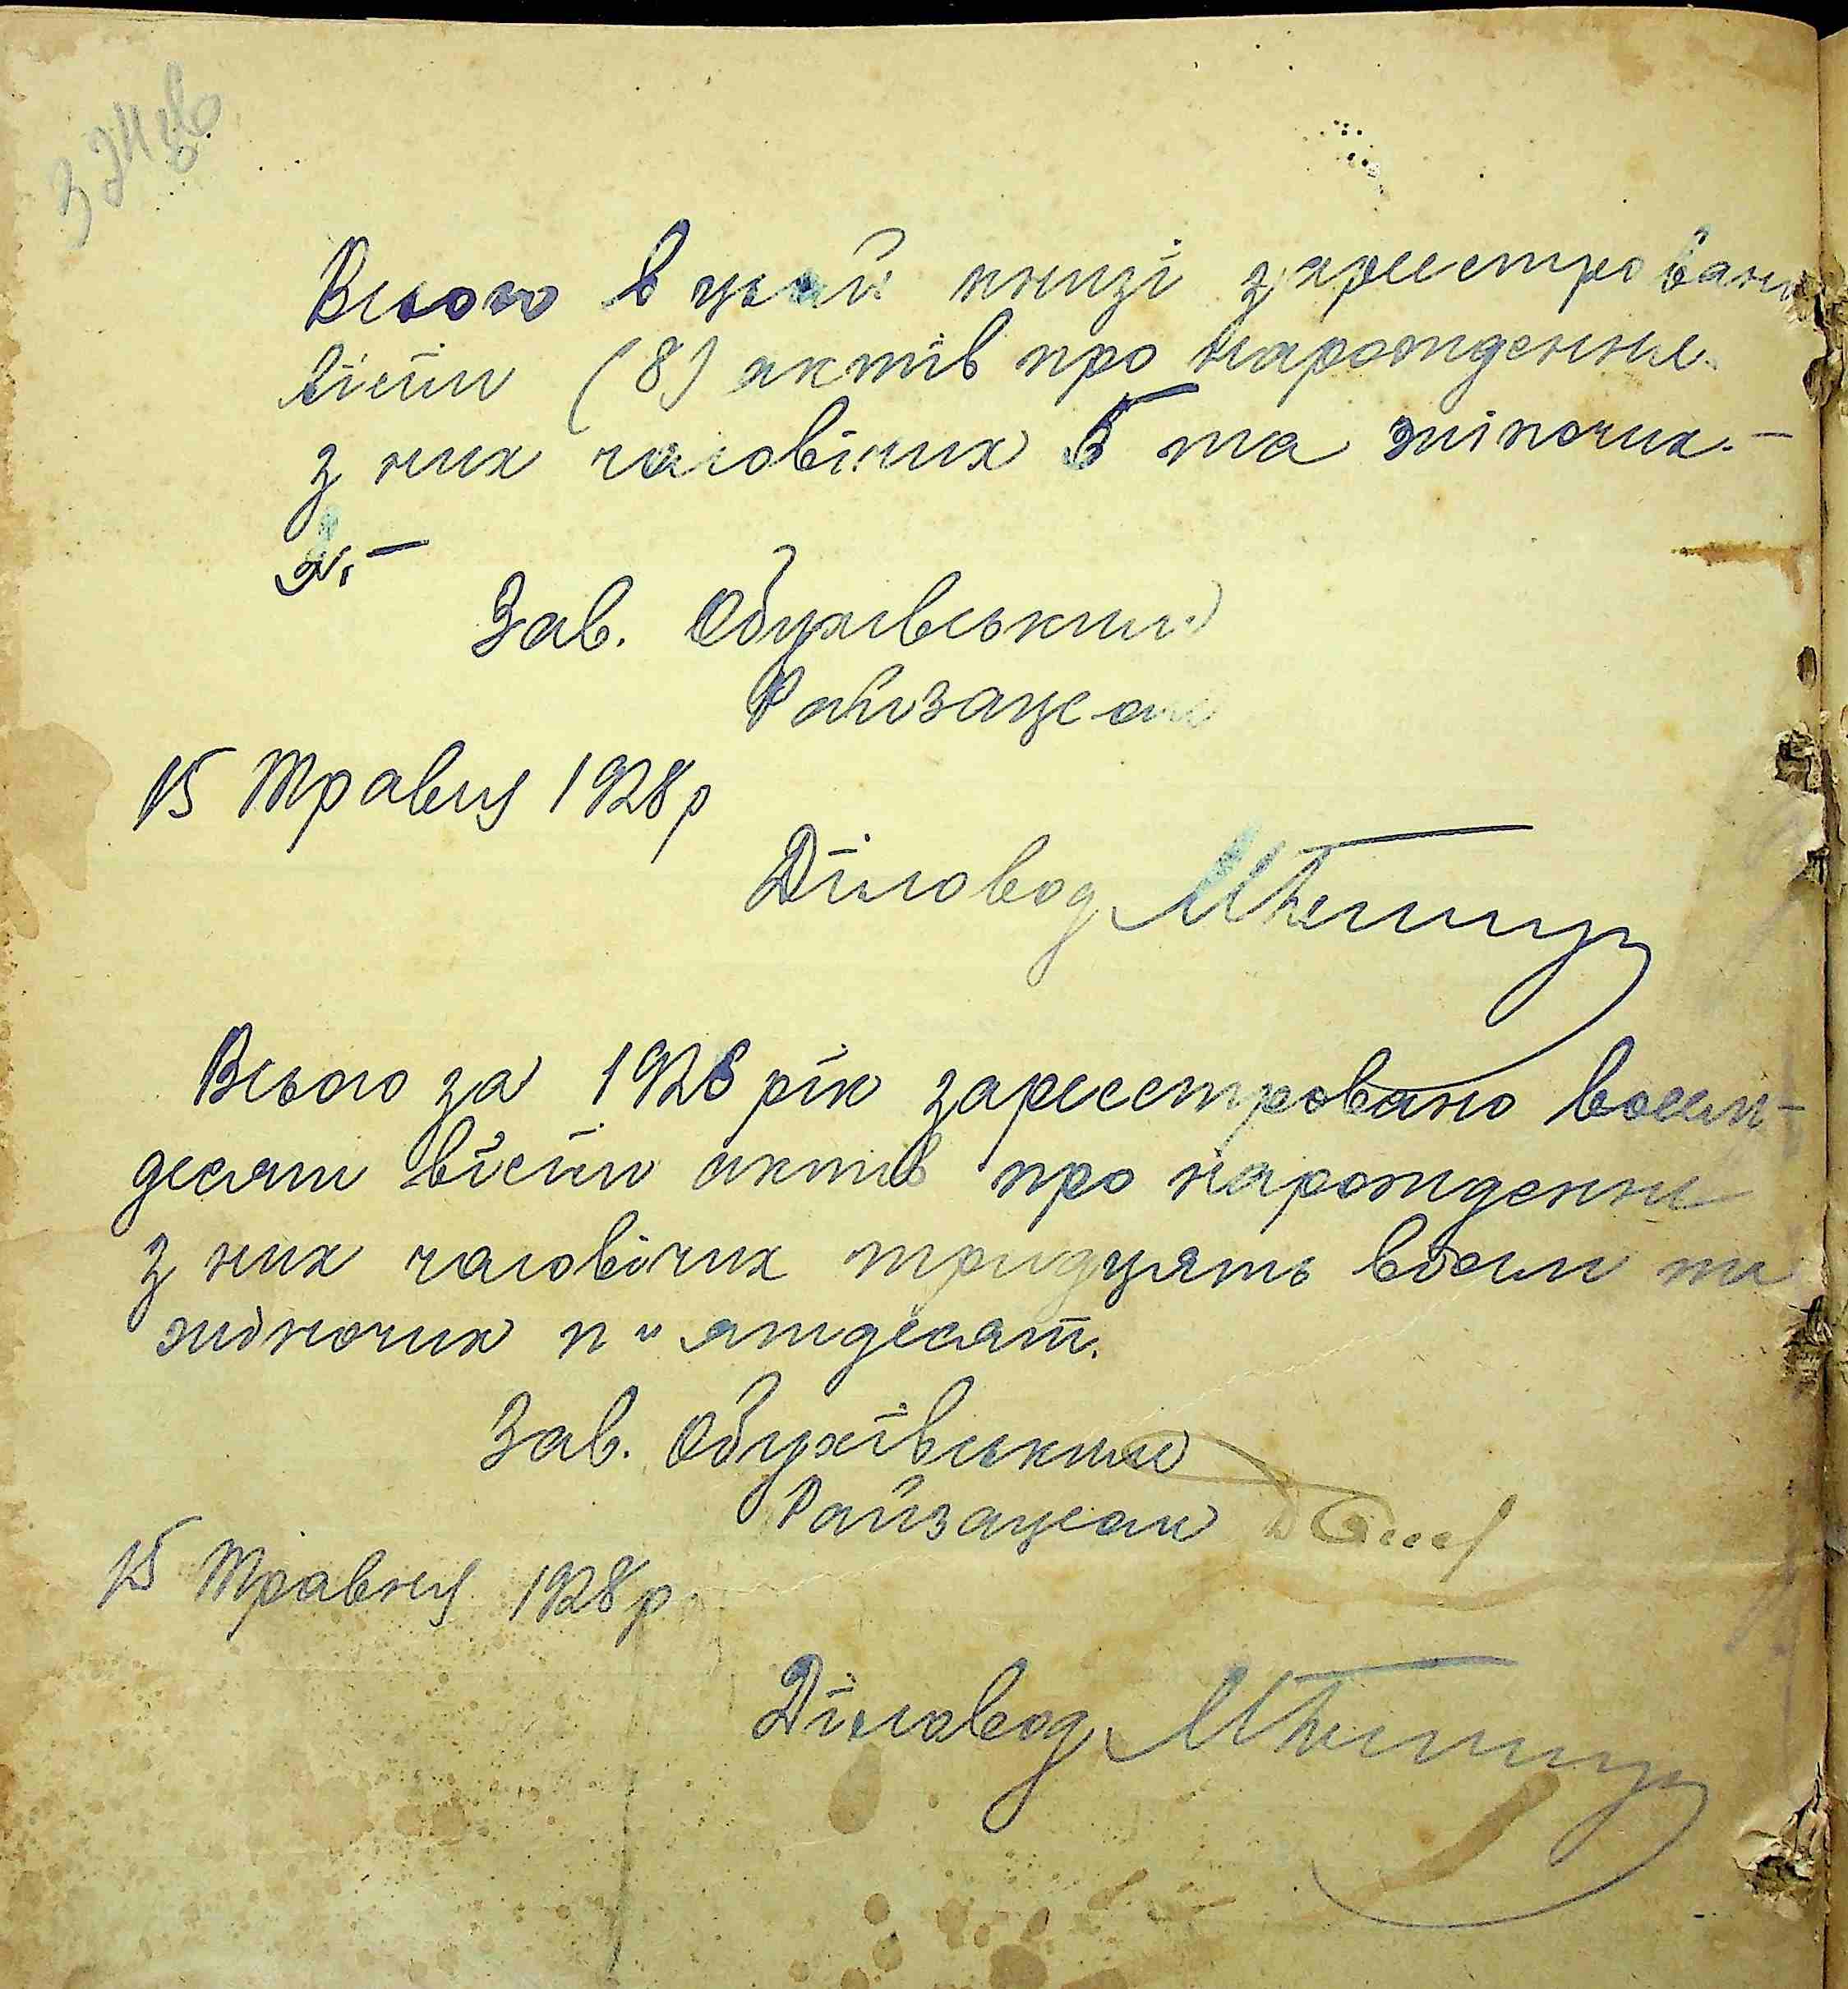 324 зв
Всього в цьий книзі зареестровано
вісім (8) актів про народження
з них чаловічих 5 та жіночих. —
3. —
Зав. Обухівським
Райзагсом
15 Травня 1928 р
Діловод
Всього за 1928 рік зареестровано восем-
десят вісім актів про народження
з них чаловічих тридцять восем та
жіночих п"ятдесят.
Зав. Обухівським
Райзагсом
15 Травня 1928 р
Діловод